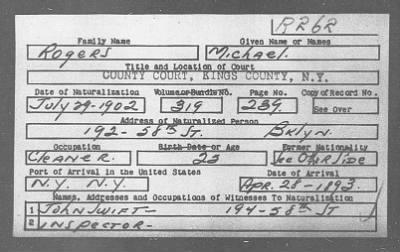 R262
Family Name Given Name or Names
Rogers Michael.
Title and Location of Court
COUNTY COURT, KINGS COUNTY, N.Y.
Date of Naturalization Volume or Bundle No. Page No. Copy of Record No.
July 29-1902 319 239 See Over
Address of Naturalized Person
192-58th St. Bklyn.
Occupation Birth Date or Age Former Nationality
Cleaner. 25 See Other Side
Port of Arrival in the United States Date of Arrival
N.Y. N.Y. Apr. 28-1893.
Names, Addresses and Occupations of Witnesses To Naturalization
1 John Swift- 194-58th St
2 Inspector-